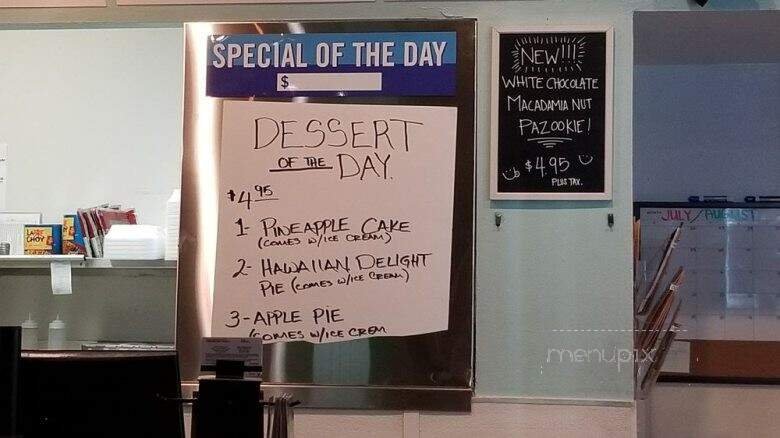 SPECIAL OF THE DAY
$
DESSERT
OF THE DAY.
$4.95
1- PINEAPPLE CAKE
(COMES W/ICE CREAM)
2- HAWAIIAN DELIGHT
PIE (COMES W/ICE CREAM)
3-APPLE PIE
(COMES W/ICE CREM
NEW!!!
WHITE CHOCOLATE
MACADAMIA NUT
PAZOOKIE!
$4.95
PLUS TAX.
JULY/AUGUST
CHOY
menupix